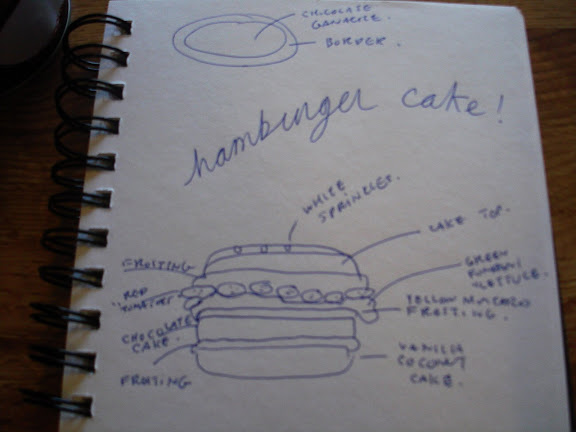 CHOCOLATE
GANACHE.
BORDER.
hamburger cake!
WHITE
SPRINKLES.
CAKE TOP.
FROSTING
GREEN
"LETTUCE.
RED
"TOMATOES"
YELLOW
FROSTING.
CHOCOLATE
CAKE.
VANILLA
COCONUT
CAKE.
FROSTING